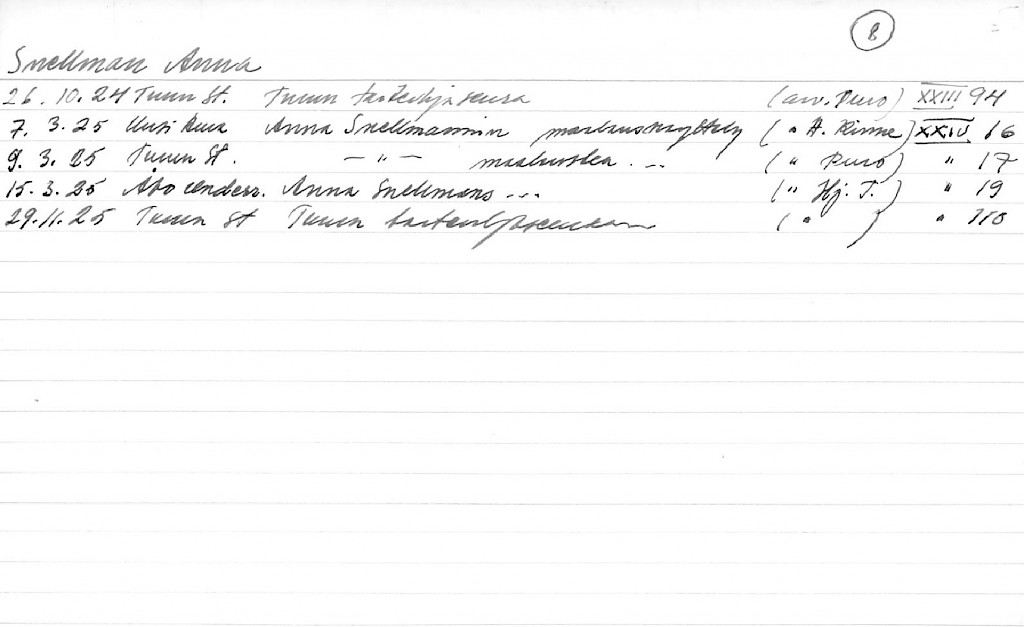 8
Snellman Anna
26. 10. 24 Turun St. Turun taiteilijaseura (arv. Puro) XXIII 94
7. 3. 25 Uusi Aura Anna Snellmannin maalausnäyttely ( " H. Kinne) XXIV 16
9. 3. 25 Turun St. — " — maalauksia ... ( " Puro) " 17
15. 3. 25 Åbo underr. Anna Snellmans ... ( " Hj. T.) " 19
29. 11. 25 Turun St Turun ( " ) " 110